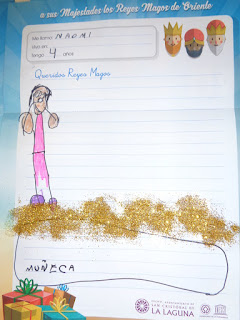 a sus Majestades los Reyes Magos de Oriente
Me llamo NAOMI
Vivo en:
Tengo 4 años
Queridos Reyes Magos
MUÑECA
SAN CRISTÓBAL DE
LA LAGUNA